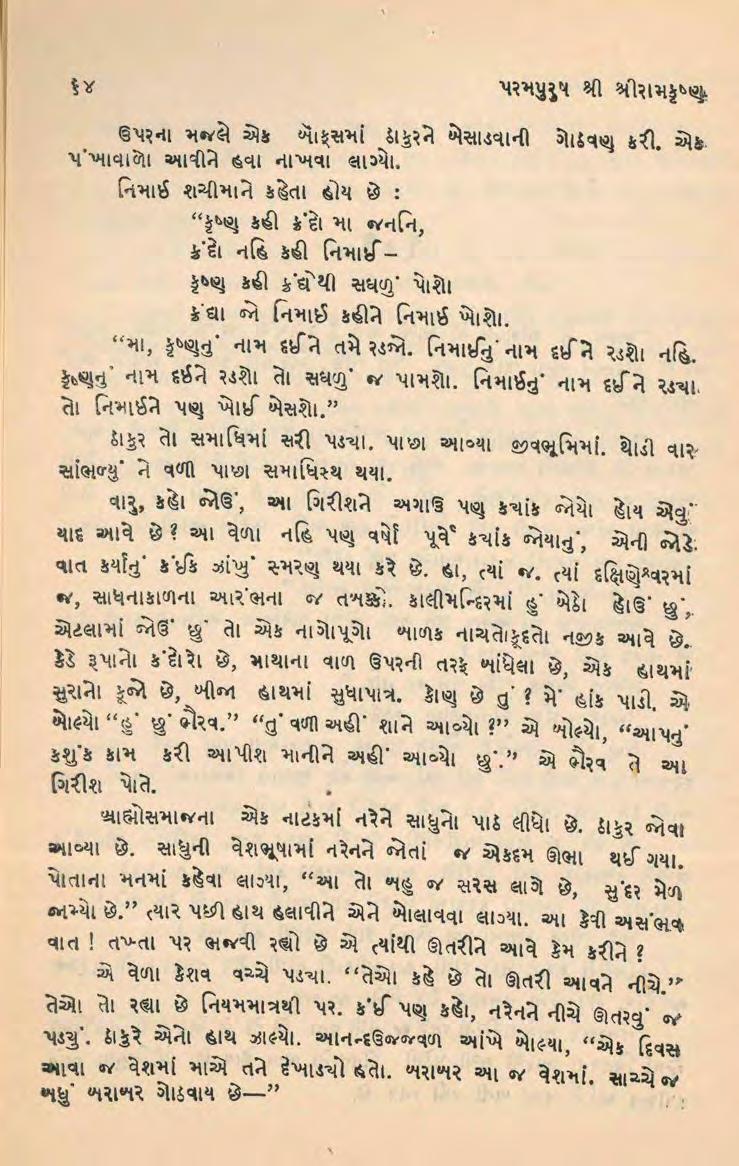 ૬૪ પરમપુરુષ શ્રી શ્રીરામકૃષ્ણ
ઉપરના મજલે એક બૉક્સમાં ઠાકુરને બેસાડવાની ગોઠવણ કરી. એક
પંખાવાળો આવીને હવા નાખવા લાગ્યો.
નિમાઈ શચીમાને કહેતા હોય છે :
“કૃષ્ણ કહી ક્રંદો મા જનનિ,
ક્રંદો નહિ કહી નિમાઈ –
કૃષ્ણ કહી ક્રંદ્યેથી સઘળું પોશો
ક્રંદ્યા જો નિમાઈ કહીને નિમાઈ ખોશો.
“મા, કૃષ્ણનું નામ દઈને તમે રડજો. નિમાઈનું નામ દઈને રડશો નહિ.
કૃષ્ણનું નામ દઈને રડશો તો સઘળું જ પામશો. નિમાઈનું નામ દઈને રડ્યા
તો નિમાઈને પણ ખોઈ બેસશો.”
ઠાકુર તો સમાધિમાં સરી પડ્યા. પાછા આવ્યા જીવભૂમિમાં. થોડી વાર
સાંભળ્યું ને વળી પાછા સમાધિસ્થ થયા.
વારુ, કહો જોઉં, આ ગિરીશને અગાઉ પણ ક્યાંક જોયો હોય એવું
યાદ આવે છે ? આ વેળા નહિ પણ વર્ષો પૂર્વે ક્યાંક જોયાનું, એની જોડે
વાત કર્યાનું કંઈક ઝાંખું સ્મરણ થયા કરે છે. હા, ત્યાં જ. ત્યાં દક્ષિણેશ્વરમાં
જ, સાધનાકાળના આરંભના જ તબક્કો. કાલીમન્દિરમાં હું બેઠો હોઉં છું,
એટલામાં જોઉં છું તો એક નાગોપૂગો બાળક નાચતોકૂદતો નજીક આવે છે.
કેડે રૂપાનો કંદોરો છે, માથાના વાળ ઉપરની તરફ બાંધેલા છે, એક હાથમાં
સુરાનો કૂજો છે, બીજા હાથમાં સુધાપાત્ર. કોણ છે તું ? મેં હાંક પાડી. એ
બોલ્યો “હું છું ભૈરવ.” “તું વળી અહીં શાને આવ્યો ?” એ બોલ્યો, “આપનું
કશુંક કામ કરી આપીશ માનીને અહીં આવ્યો છું.” એ ભૈરવ તે આ
ગિરીશ પોતે.
બ્રાહ્મોસમાજના એક નાટકમાં નરેને સાધુનો પાઠ લીધો છે. ઠાકુર જોવા
આવ્યા છે. સાધુની વેશભૂષામાં નરેનને જોતાં જ એકદમ ઊભા થઈ ગયા.
પોતાના મનમાં કહેવા લાગ્યા, “આ તો બહુ જ સરસ લાગે છે, સુંદર મેળ
જામ્યો છે.” ત્યાર પછી હાથ હલાવીને એને બોલાવવા લાગ્યા. આ કેવી અસંભવ
વાત ! તખ્તા પર ભજવી રહ્યો છે એ ત્યાંથી ઊતરીને આવે કેમ કરીને ?
એ વેળા કેશવ વચ્ચે પડ્યા. “તેઓ કહે છે તો ઊતરી આવને નીચે.”
તેઓ તો રહ્યા છે નિયમમાત્રથી પર. કંઈ પણ કહો, નરેનને નીચે ઊતરવું જ
પડ્યું. ઠાકુરે એનો હાથ ઝાલ્યો. આનન્દઉજ્જવળ આંખે બોલ્યા, “એક દિવસ
આવા જ વેશમાં માએ તને દેખાડ્યો હતો. બરાબર આ જ વેશમાં. સાચ્ચે જ
બધું બરાબર ગોઠવાય છે—”